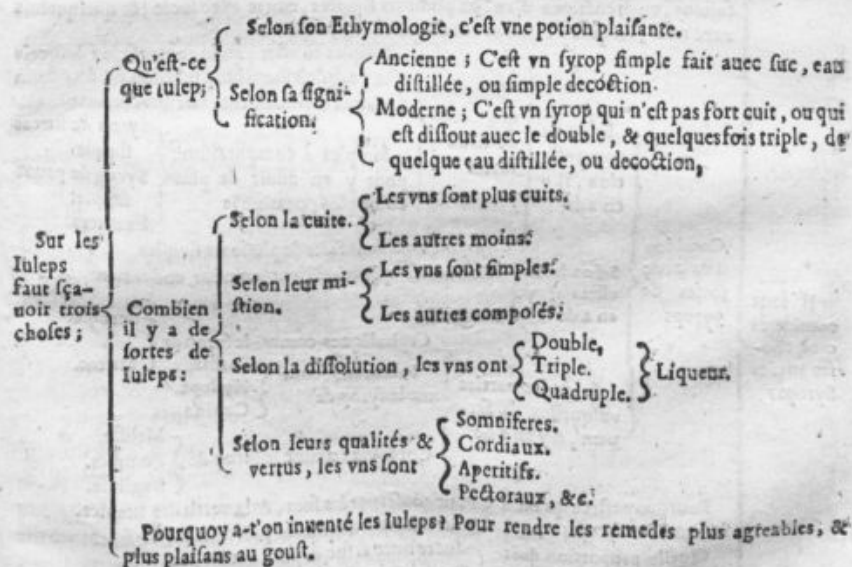 Selon son Ethymologie, c'est vne potion plaisante.
Qu'est-ce
que iulep;
Selon sa signi-
fication.
Ancienne ; C'est vn syrop simple fait auec suc, eau
distillée, ou simple decoction.
Moderne ; C'est vn syrop qui n'est pas fort cuit, ou qui
est dissout auec le double, & quelques fois triple, de
quelque eau distillée, ou decoction,
Sur les
Iuleps
faut sça-
uoir trois
choses ;
Combien
il y a de
sortes de
Iuleps:
Selon la cuite.
Les vns sont plus cuits.
Les autres moins.
Selon leur mi-
stion.
Les vns sont simples.
Les autres composés.
Selon la dissolution, les vns ont
Double,
Triple.
Quadruple.
Liqueur.
Selon leurs qualités &
vertus, les vns sont
Somniferes.
Cordiaux.
Aperitifs.
Pectoraux, &c.
Pourquoy a-t'on inuenté les Iuleps? Pour rendre les remedes plus agreables, &
plus plaisans au goust.